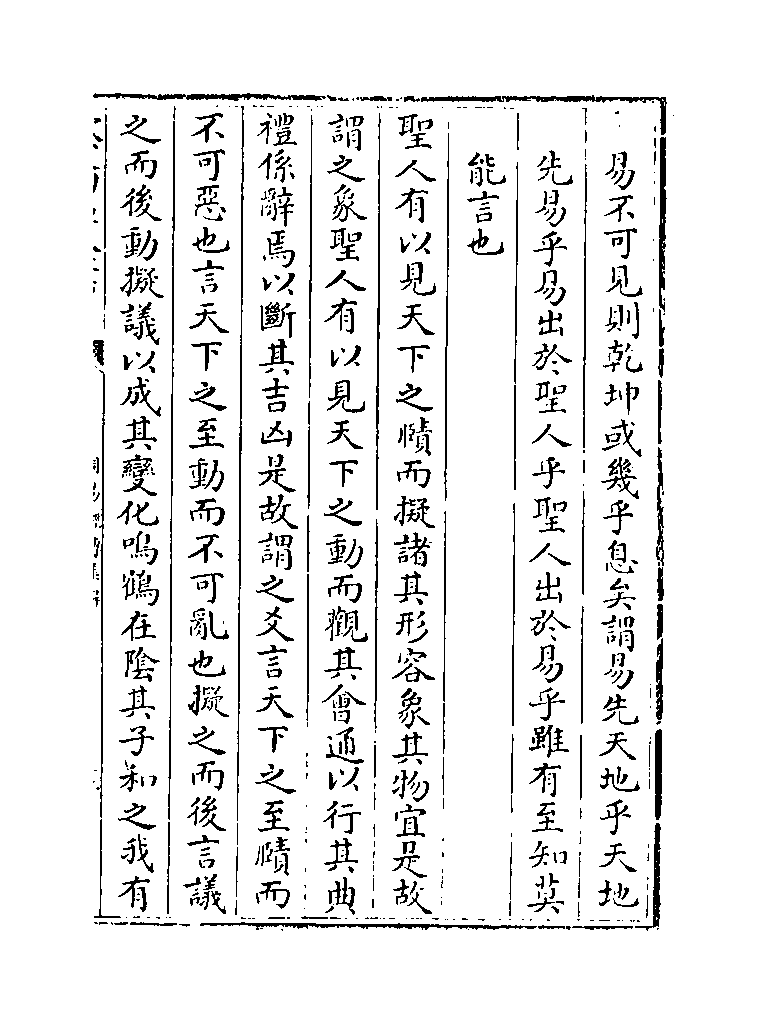 易不可見則乾坤或幾乎息矣謂易先天地乎天地
先易乎易出於聖人乎聖人出於易乎雖有至知莫
能言也
聖人有以見天下之賾而擬諸其形容象其物宜是故
謂之象聖人有以見天下之動而觀其會通以行其典
禮係辭焉以斷其吉凶是故謂之爻言天下之至賾而
不可惡也言天下之至動而不可亂也擬之而後言議
之而後動擬議以成其變化鳴鶴在陰其子和之我有